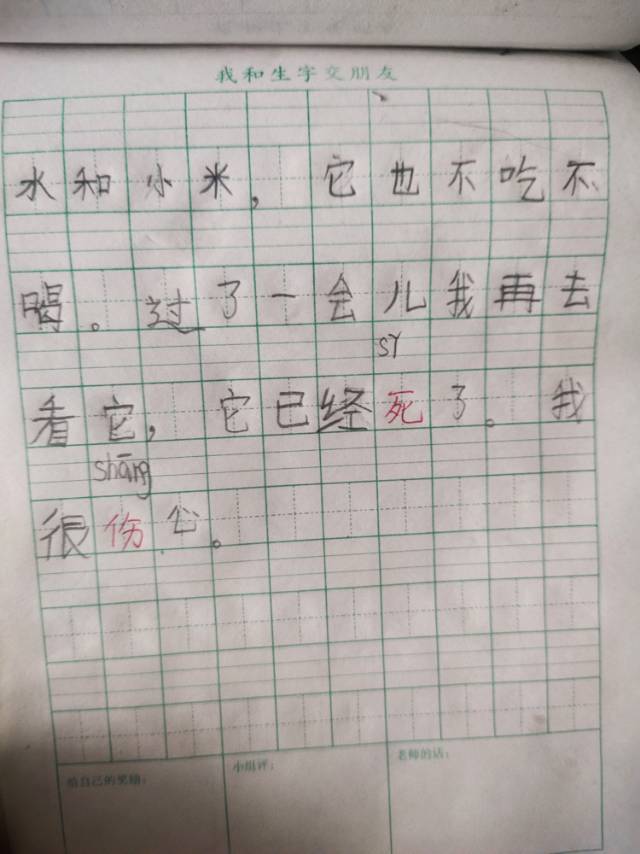 我和生字交朋友
水和小米，它也不吃不
喝。过了一会儿我再去
sǐ
看它，它已经死了。我
shāng
很伤心。
给自己的奖励：
小组评：
老师的话：